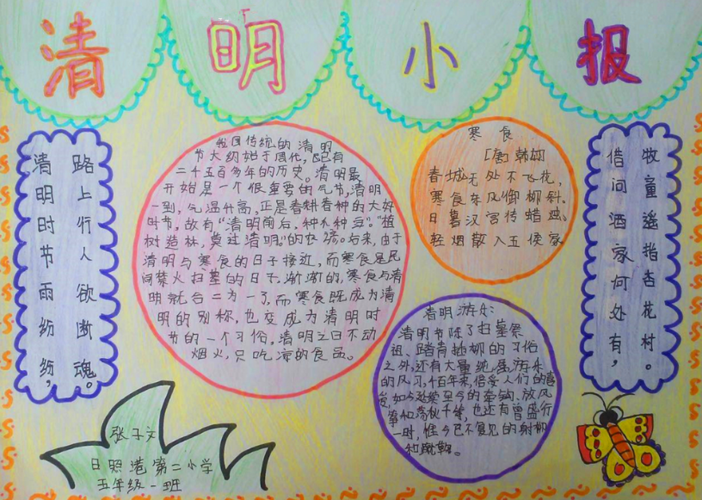 清明小报
清明时节雨纷纷,
路上行人欲断魂。
我国传统的清明
节大约始于周代,已有
二千五百多年的历史。清明最
开始是一个很重要的气节,清明
一到,气温升高,正是春耕春种的大好
时节,故有“清明前后,种瓜种豆”。“植
树造林,莫过清明”的农谚。后来,由于
清明与寒食的日子接近,而寒食是民
间禁火扫墓的日子,渐渐的,寒食与清
明就合二为一了,而寒食既成为清明
的别称,也变成为清明时
节的一个习俗,清明之日不动
烟火,只吃凉的食品。
寒食
[唐]韩翃
春城无处不飞花,
寒食东风御柳斜。
日暮汉宫传蜡烛,
轻烟散入五侯家
清明游乐:
清明节除了扫墓祭
祖、踏青插柳的习俗
之外,还有大量纯属游乐
的风习,千百年来,倍受人们的喜
爱,如今延续至今的牵钩、放风
筝和荡秋千等,也还有曾盛行
一时,惟今已不复见的射柳
和蹴鞠。
借问酒家何处有,
牧童遥指杏花村。
张子文
日照港第二小学
五年级一班